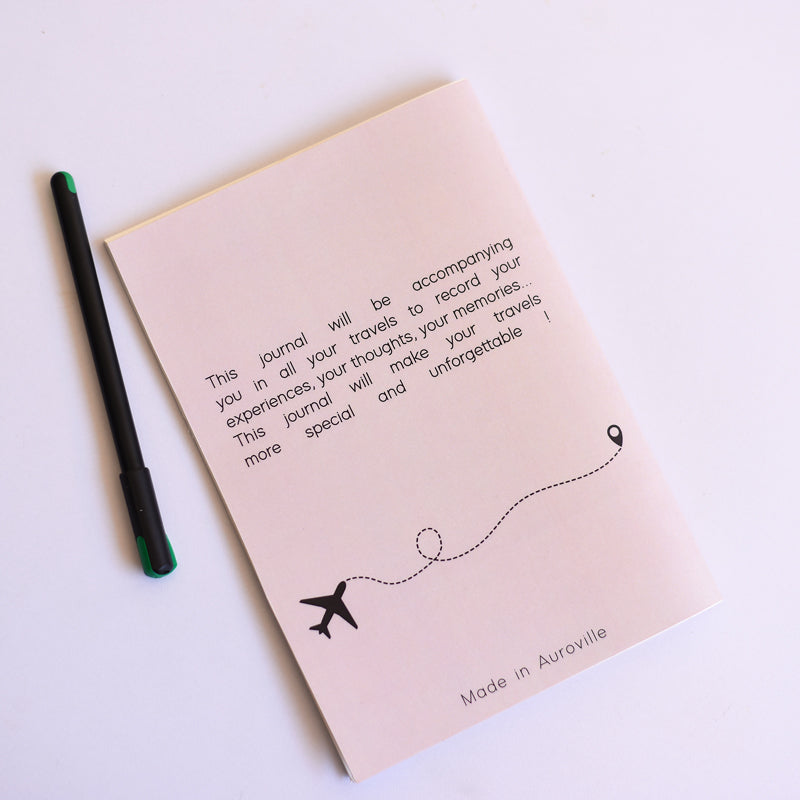 This journal will be accompanying
you in all your travels to record your
experiences, your thoughts, your memories...
This journal will make your travels
more special and unforgettable !
Made in Auroville